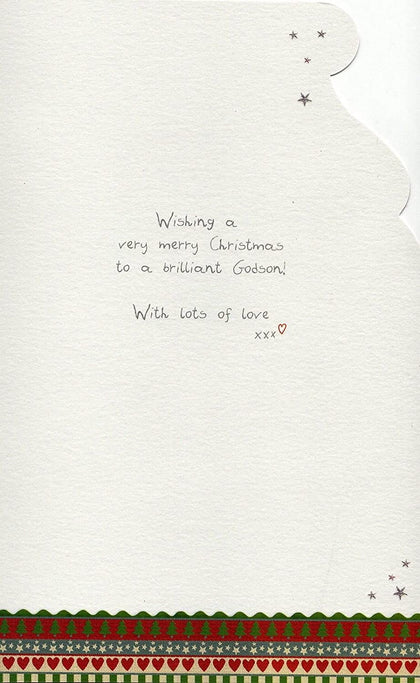 Wishing a
very merry Christmas
to a brilliant Godson!
With lots of love
xxx